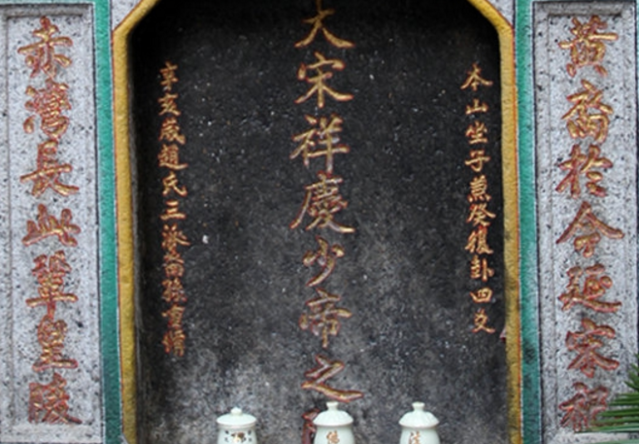 黃裔於今延宋祚
本山坐子兼癸復卦四爻
大宋祥慶少帝之
辛亥歲趙氏三派裔孫重修
赤灣長此鞏皇陵